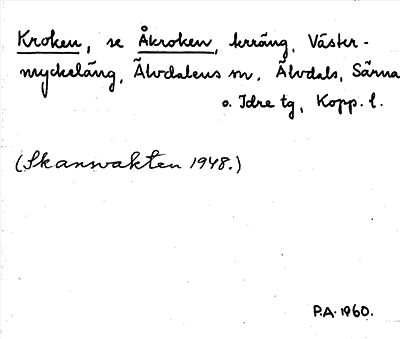 Kroken, se Åkroken, terräng, Väster-
myckeläng, Älvdalens sn, Älvdals, Särna
o. Idre tg, Kopp. l.
(Skansvakten 1948.)
P.A. 1960.